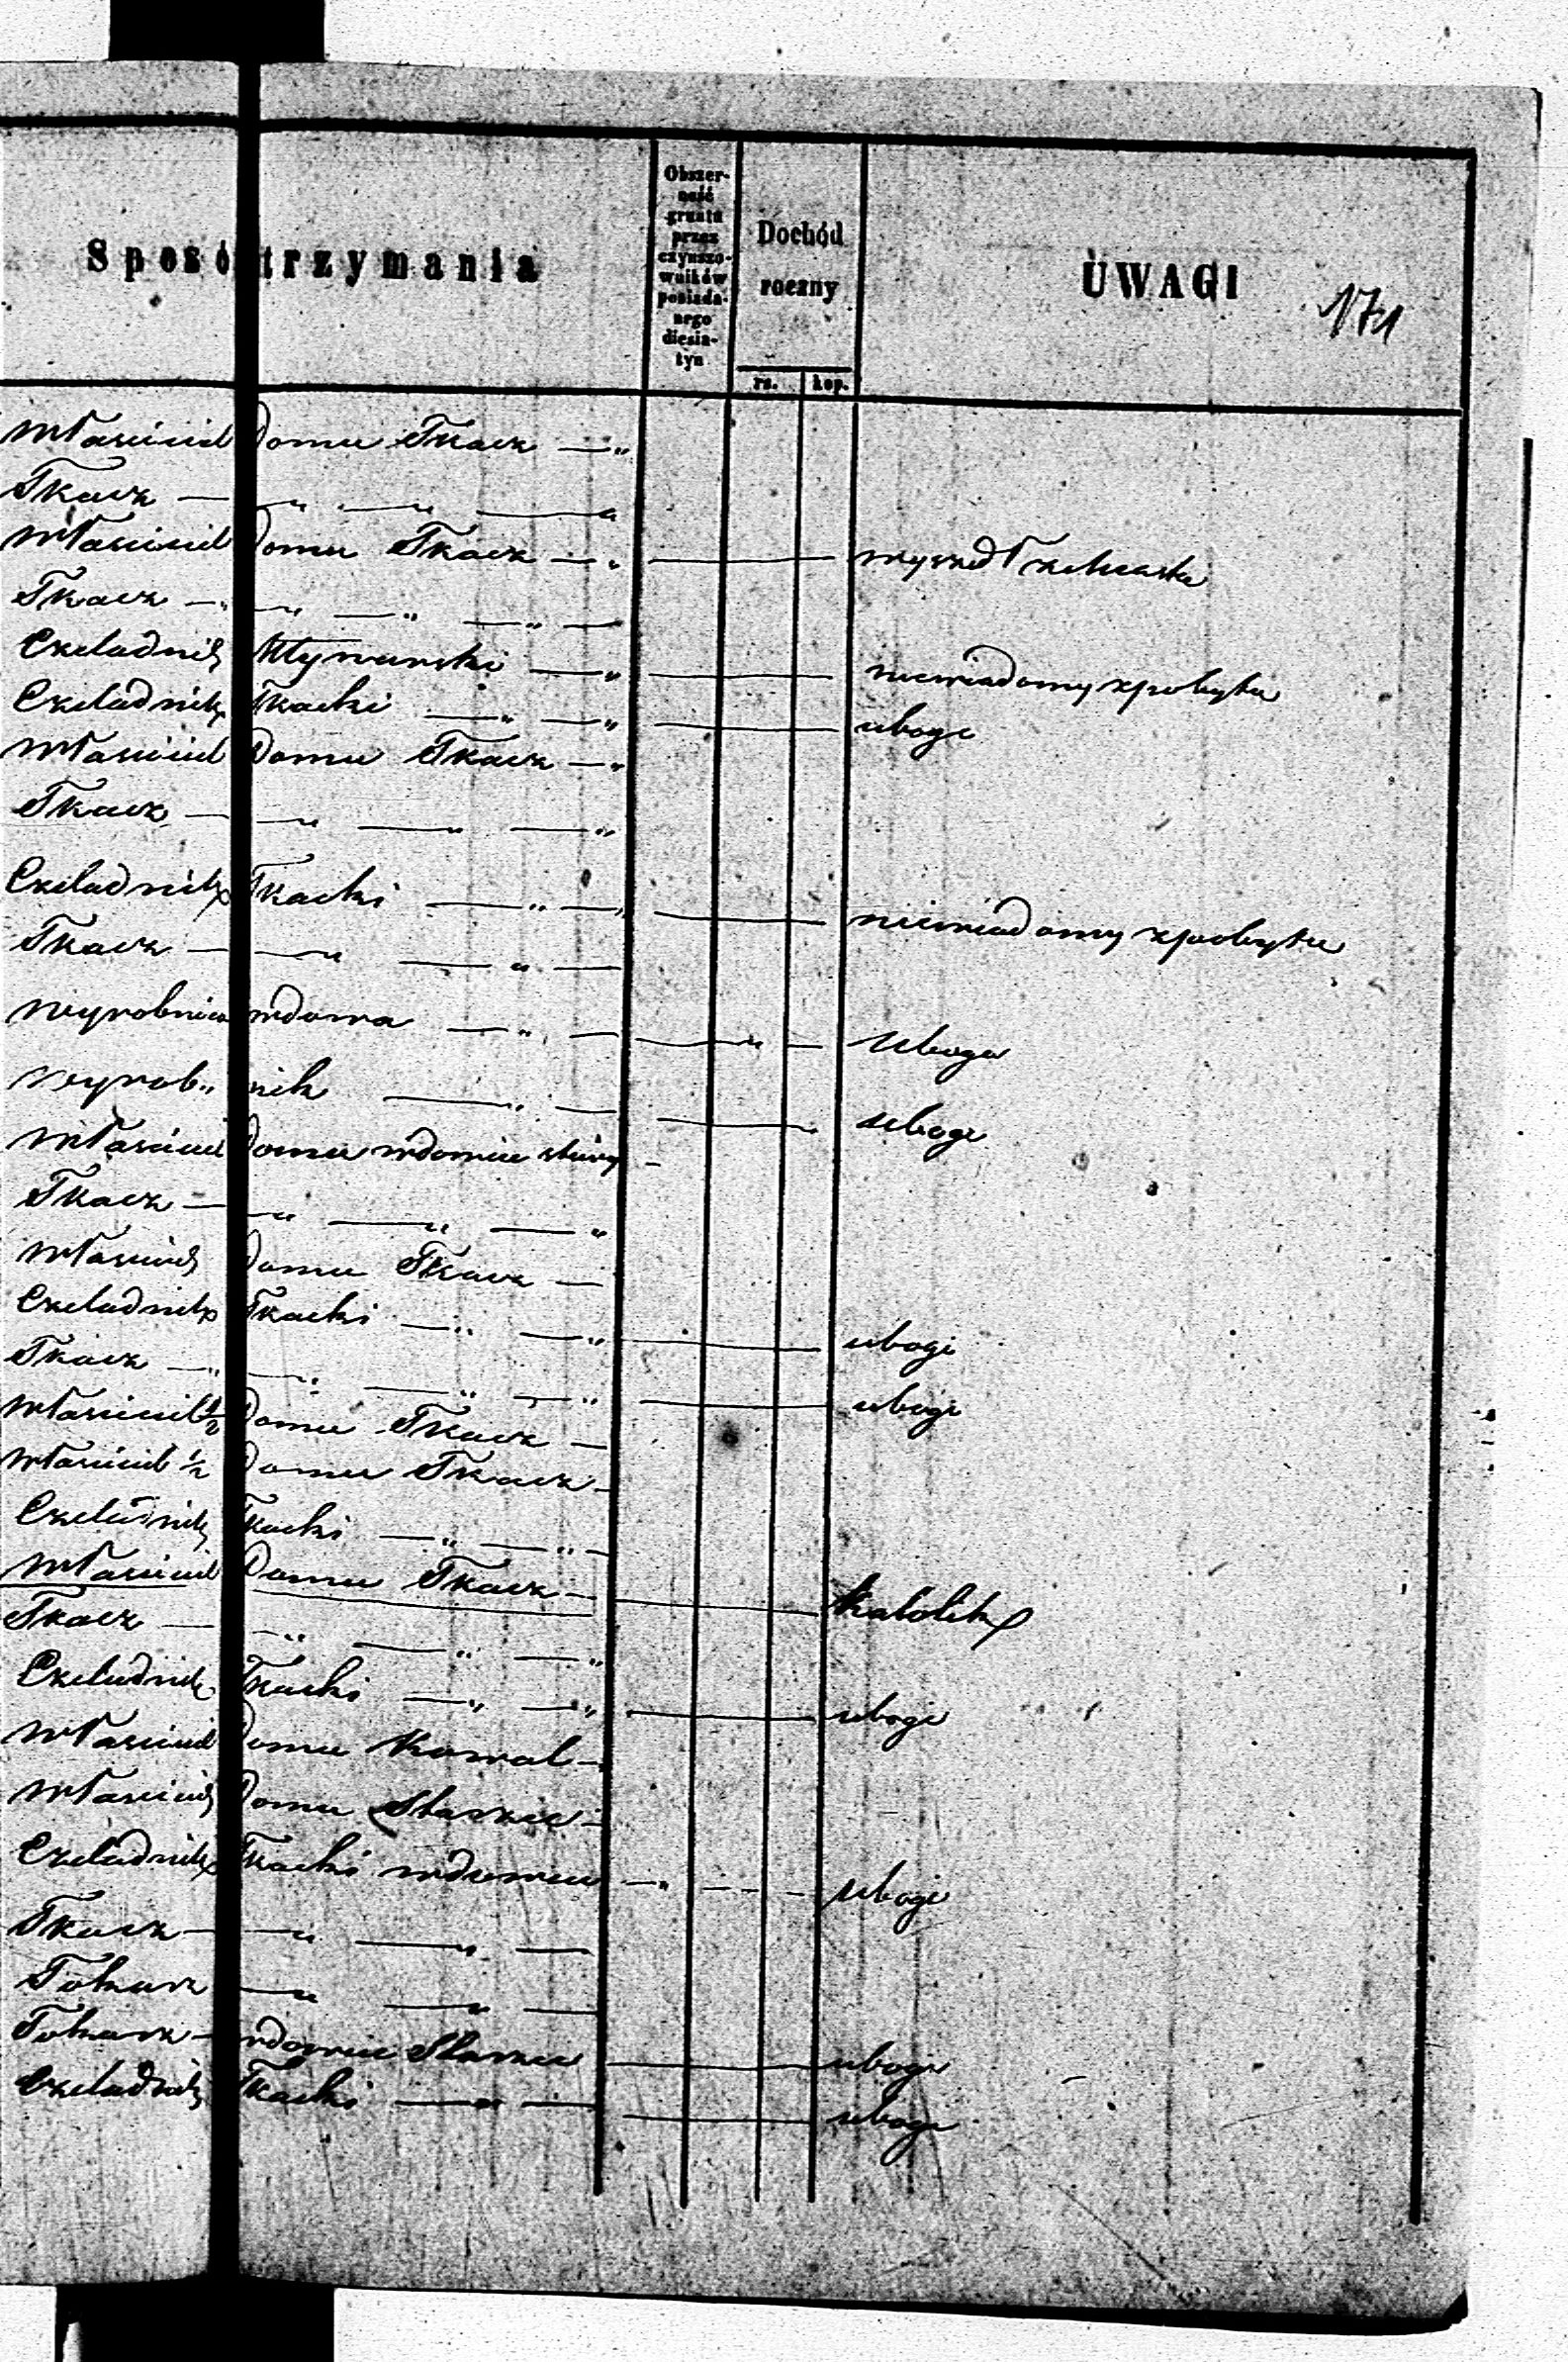 Sposó trzymania
Obszer-
ność
gruntu
przez
czynszo-
wników
posiada-
nego
diesia-
tyn
Dochód
roczny
rs. kop.
UWAGI
171
Właściciel Domu Tkacz — "
Tkacz — — " — " — "
Właściciel Domu Tkacz — " — wyszedł
Tkacz — " — " — " — " —
Czeladnik — " — niewiadomy z pobytu
Czeladnik Tkacki — " — " — ubogi
Właściciel Domu Tkacz — "
Tkacz — — " — " — "
Czeladnik Tkacki — " — — niewiadomy z pobytu
Tkacz — — " — " —
Wyrobnica wdowa — " — — " — Uboga
Wyrob" nik — " — — ubogi
Właściciel Domu wdowiec —
Tkacz — — " — " — "
Właściciel Domu Tkacz —
Czeladnik Tkacki — " — " — ubogi
Tkacz — " — " — " — " — ubogi
Właściciel ½ Domu Tkacz —
Właściciel ½ Domu Tkacz —
Czeladnik Tkacki — " — " —
Właściciel Domu Tkacz — — Katolik
Tkacz — — " — " — "
Czeladnik Tkacki — " — " — ubogi
Właściciel Domu Kowal —
Właściciel Domu Starzec —
Czeladnik Tkacki wdowiec — " — — — Ubogi
Tkacz — — " — " —
Tokarz — " — " —
Tokarz — wdowiec Starzec — ubogi
Czeladnik Tkacki — " — — ubogi